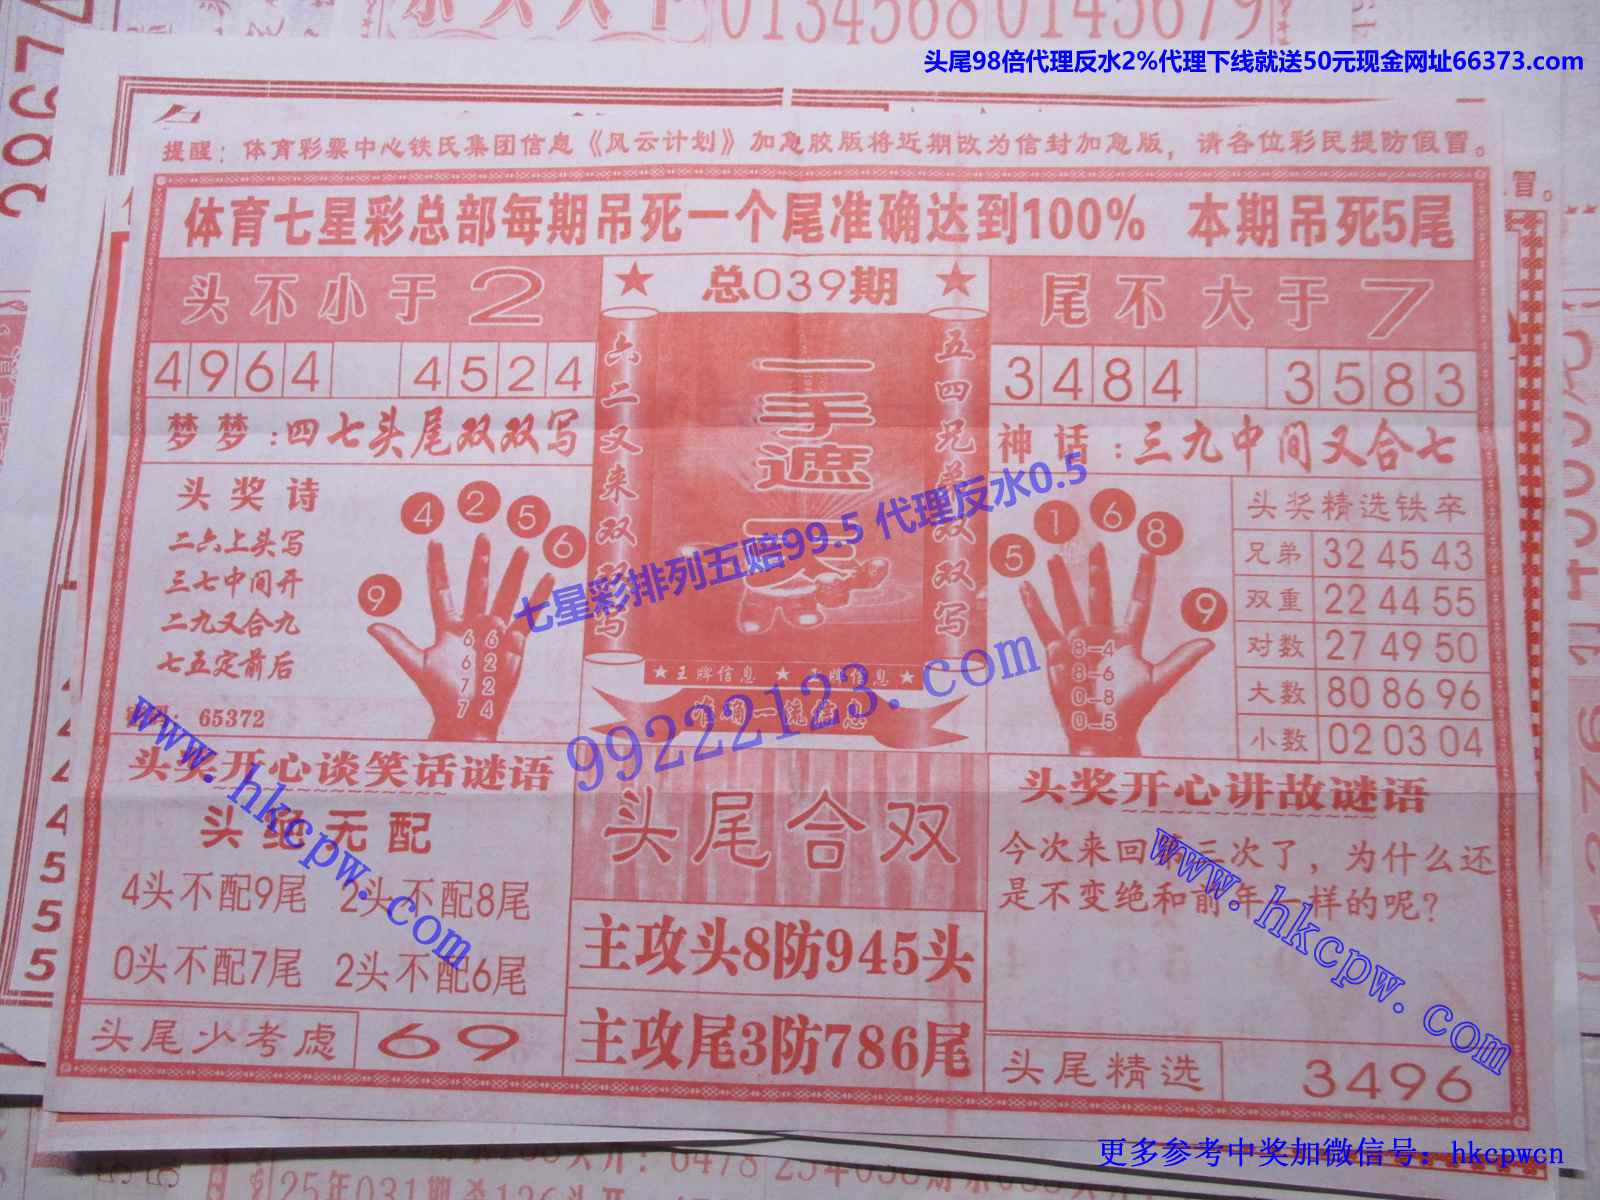 0134568 0145679
头尾98倍代理反水2%代理下线就送50元现金网址66373.com
提醒：体育彩票中心铁氏集团信息《风云计划》加急胶版将近期改为信封加急版，请各位彩民提防假冒。
体育七星彩总部每期吊死一个尾准确达到100% 本期吊死5尾
头不小于2
★ 总039期 ★
尾不大于7
4964 4524
3484 3583
梦梦：四七头尾双双写
神话：三九中间又合七
六二又来双双写
一手遮天
五四兄弟双双写
头奖诗
二六上头写
三七中间开
二九又合九
七五定前后
65372
9 4 2 5 6
6 6
6 2
7 2
7 4
★王牌信息 ★王牌信息★
准确一统信息
5 1 6 8 9
8-4
8-6
0-8
0-5
头奖精选铁卒
兄弟 32 45 43
双重 22 44 55
对数 27 49 50
大数 80 86 96
小数 02 03 04
七星彩排列五赔99.5 代理反水0.5
99222123.com
www.hkcpw.com
头奖开心谈笑话谜语
头绝无配
4头不配9尾 2头不配8尾
0头不配7尾 2头不配6尾
头尾少考虑 69
头尾合双
主攻头8防945头
主攻尾3防786尾
头奖开心讲故谜语
今次来回第三次了，为什么还
是不变绝和前年一样的呢？
www.hkcpw.com
头尾精选 3496
更多参考中奖加微信号：hkcpwcn